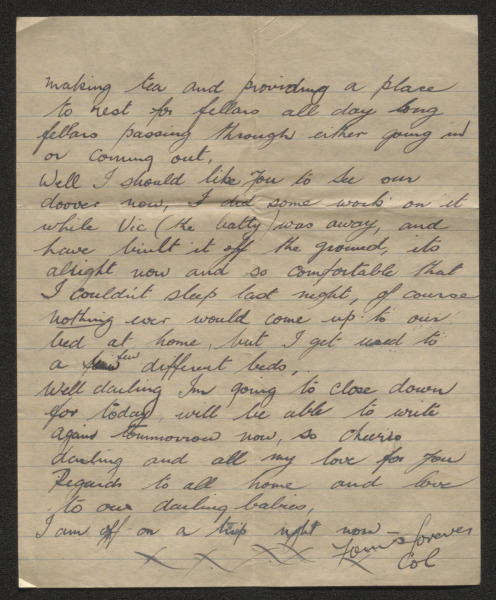 making tea and providing a place
to rest for fellars all day long
fellars passing through either going in
or coming out,
Well I should like you to see our
doover now, I did some work on it
while Vic (the batty) was away, and
have built it off the ground, its
alright now and so comfortable that
I couldn't sleep last night, of course
nothing ever would come up to our
bed at home, but I get used to
a few different beds,
Well darling Im going to close down
for today, will be able to write
again tommorrow now, so cheerio
darling and all my love for you
Regards to all home and love
to our darling babies,
I am off on a trip right now –
x x x x x Yours forever
Col